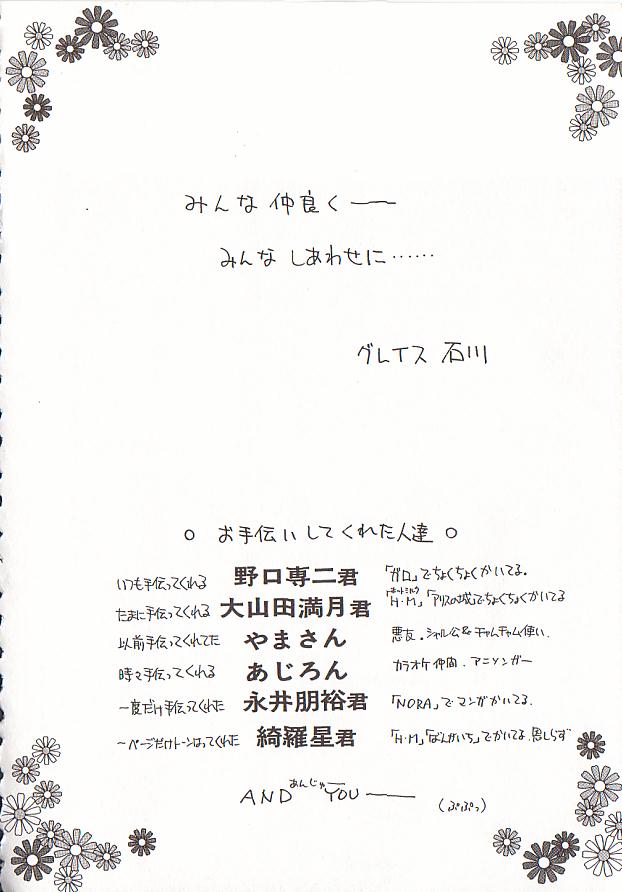 みんな 仲良く――
みんな しあわせに……
グレイス 石川
○ お手伝いしてくれた人達 ○
いつも手伝ってくれる 野口専二君 「ガロ」でちょくちょくかいてる.
たまに手伝ってくれる 大山田満月君 「H・M」「アリスの城」でちょくちょくかいてる
ホットミルク
以前手伝ってくれてた やまさん 悪友. シャル公&チャムチャム使い.
時々手伝ってくれる あじろん カラオケ仲間. アニソンガー
一度だけ手伝ってくれた 永井朋裕君 「NORA」でマンガかいてる.
一ページだけトーンはってくれた 綺羅星君 「H・M」「ばんがいち」でかいてる.恩しらず
あんじゅー
AND YOU―― (ぷぷっ)